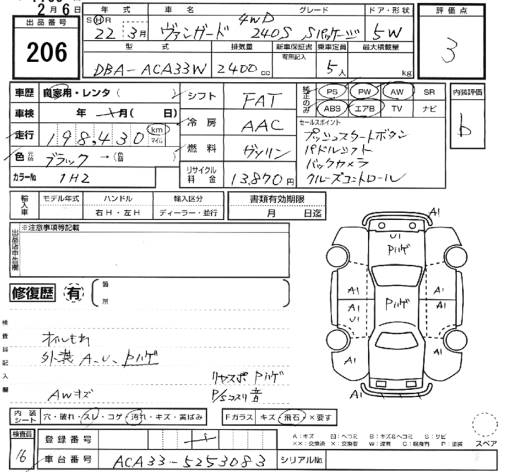 2月6日
出品番号
206
年式 車名 グレード ドア・形状
S H R 22年 3月 ヴァンガード 4WD 240S Sパッケージ 5W
型式 排気量 新車保証書 乗車定員 最大積載量
有無記載
DBA-ACA33W 2400cc 5人 kg
評価点
3
車歴 自家用・レンタ( )
車検 年 月( 日)
走行 198,430 km マイル
色 元色 ブラック→(色)
カラーNo 1H2
シフト FAT
冷房 AAC
燃料 ガソリン
リサイクル料金 13,870円
PS PW AW SR
ABS エアB TV ナビ
セールスポイント
プッシュスタートボタン
パドルシフト
バックカメラ
クルーズコントロール
内装評価
D
輸入車 モデル年式 ハンドル 輸入区分
右H・左H ディーラー・並行
書類有効期限
月 日迄
出品店申告欄
※注意事項等記載
修復歴 有 箇所
検査員記入欄
オイルもれ
外装 A、U、Pハゲ
AWキズ
リヤスポ Pハゲ
P/Sコスリ音
A1
U1
Pハゲ
A1
A1
A1
A1
Pハゲ
A1
A1
内装シート 穴・破れ・スレ・コゲ・汚れ・キズ・黄ばみ
Fガラス キズ・飛石・×要す
スペア
検査員
16
登録番号
車台番号 ACA33-5253083 シリアルNo.